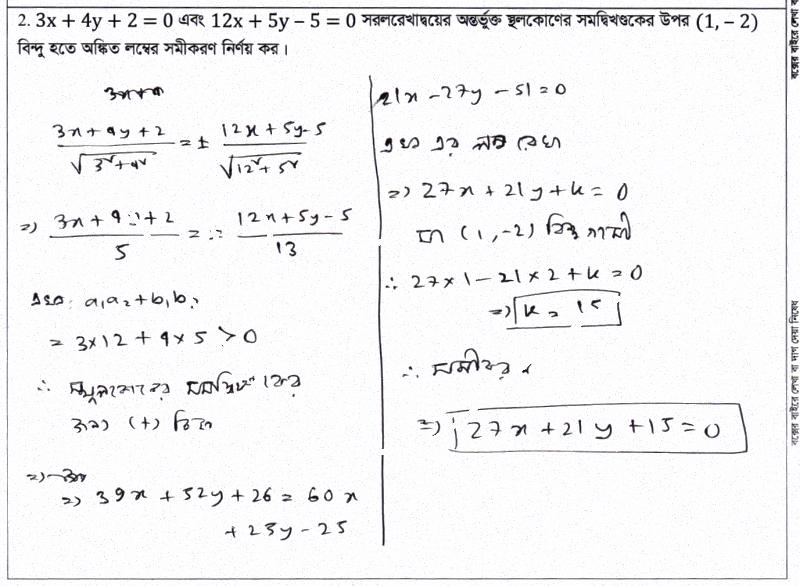 2. 3x + 4y + 2 = 0 এবং 12x + 5y – 5 = 0 সরলরেখাদ্বয়ের অন্তর্ভুক্ত স্থূলকোণের সমদ্বিখণ্ডকের উপর (1, – 2)
বিন্দু হতে অঙ্কিত লম্বের সমীকরণ নির্ণয় কর।
(3x+4y+2)/√(3²+4²) = ± (12x+5y-5)/√(12²+5²)
⇒ (3x+4y+2)/5 = (12x+5y-5)/13
এখন, a₁a₂+b₁b₂
= 3×12 + 4×5 > 0
∴ স্থূলকোণের সমদ্বিখণ্ডকের
জন্য (+) চিহ্ন
⇒ 39x + 52y + 26 = 60x
+ 25y - 25
21x - 27y - 51 = 0
এখন এর লম্ব রেখা
⇒ 27x + 21y + k = 0
যা (1,-2) বিন্দুগামী
∴ 27×1 - 21×2 + k = 0
⇒ k = 15
∴ সমীকরণ
⇒ 27x + 21y + 15 = 0
বক্সের বাইরে লেখা বা দাগ দেয়া নিষেধ